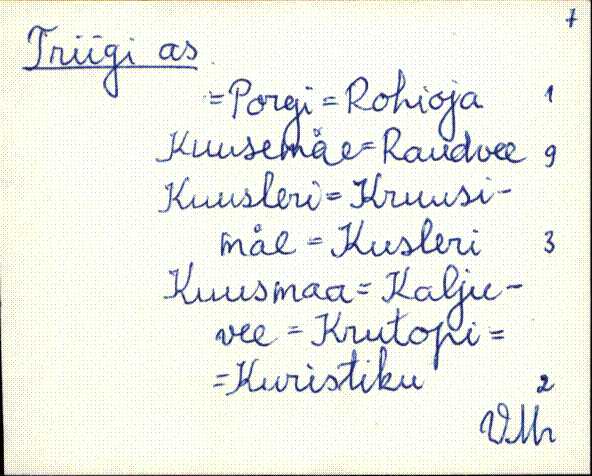 7
Triigi as
=Porgi=Rohioja 1
Kuusemäe=Raudvee 9
Kuusleri=Kruusi-
mäe=Kusleri 3
Kuusmaa=Kalju-
vee=Krutopi=
=Kuristiku 2
VMr